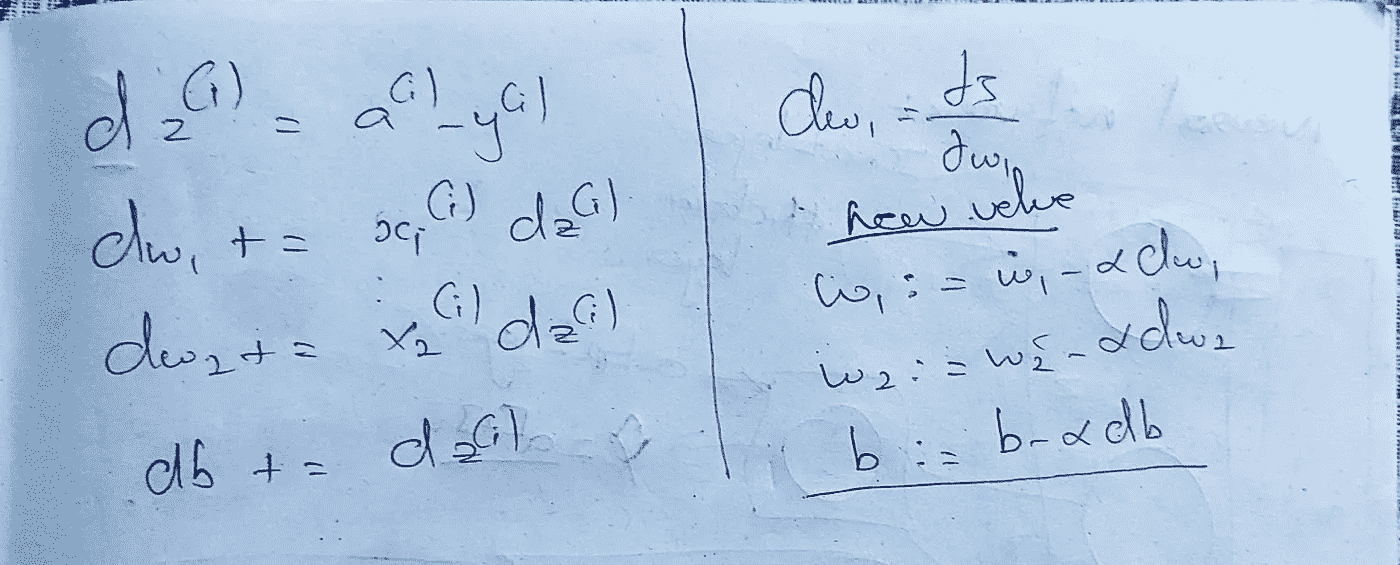 dz⁽ⁱ⁾ = a⁽ⁱ⁾ - y⁽ⁱ⁾
dw₁ += x₁⁽ⁱ⁾ dz⁽ⁱ⁾
dw₂ += x₂⁽ⁱ⁾ dz⁽ⁱ⁾
db += dz⁽ⁱ⁾
dw₁ = ∂J/∂w₁
new value
w₁ := w₁ - α dw₁
w₂ := w₂ - α dw₂
b := b - α db